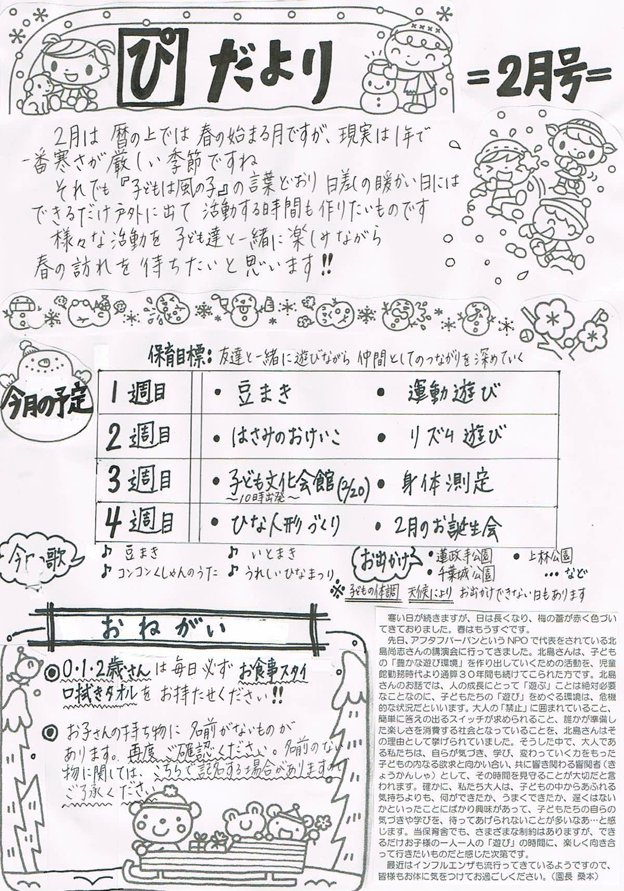 ぴだより
=2月号=
2月は 暦の上では 春の始まる月ですが、現実は1年で
一番寒さが厳しい季節ですね
それでも『子どもは風の子』の言葉どおり 日差しの暖かい日には
できるだけ戸外に出て 活動する時間も作りたいものです
様々な活動を 子ども達と一緒に楽しみながら
春の訪れを待ちたいと思います!!
保育目標: 友達と一緒に遊びながら 仲間としてのつながりを深めていく
今月の予定
1週目 ・豆まき ・運動遊び
2週目 ・はさみのおけいこ ・リズム遊び
3週目 ・子ども文化会館(2/20) ・身体測定
〜10時出発〜
4週目 ・ひな人形づくり ・2月のお誕生会
今月の歌
♪ 豆まき ♪ いとまき
♪ コンコンくしゃんのうた ♪ うれしいひなまつり
お出かけ ・蓮政寺公園 ・上林公園
・千葉城公園 …など
※子どもの体調 天候により お出かけできない日もあります
おねがい
●0・1・2歳さんは毎日必ずお食事スタイ
口拭きタオルをお持たせください!!
●お子さんの持ち物に名前がないものが
あります。再度ご確認ください。名前のない
物に関しては、こちらで記名する場合がありますので
ご了承ください
寒い日が続きますが、日は長くなり、梅の蕾が赤く色づい
てきておりました。春はもうすぐです。
先日、アフタフバーバンというNPOで代表をされている北
島尚志さんの講演会に行ってきました。北島さんは、子ども
の「豊かな遊び環境」を作り出していくための活動を、児童
館勤務時代より通算30年間も続けてこられた方です。北島
さんのお話では、人の成長にとって「遊ぶ」ことは絶対必要
なことなのに、子どもたちの「遊び」をめぐる環境は、危機
的な状況だといいます。大人の「禁止」に囲まれていること、
簡単に答えの出るスイッチが求められること、誰かが準備し
た楽しさを消費する社会となっていることを、北島さんはそ
の理由として挙げられていました。そうした中で、大人であ
る私たちは、自らが気づき、学び、変わっていく力をもった
子どもの内なる欲求と向かい合い、共に響き関わる響関者(き
ょうかんしゃ)として、その時間を見守ることが大切だと言
われます。確かに、私たち大人は、子どもの中からあふれる
気持ちよりも、何ができたか、うまくできたか、遅くはない
かといったことにばかり興味があって、子どもたちの自らの
気づきや学びを、待ってあげられないことが多いなあ…と感
じます。当保育舎でも、さまざまな制約はありますが、でき
るだけお子様の一人一人の「遊び」の時間に、楽しく向き合
って行きたいものだと感じた次第です。
最近はインフルエンザも流行ってきているようですので、
皆様もお体に気をつけてお過ごしください。(園長 桑本)